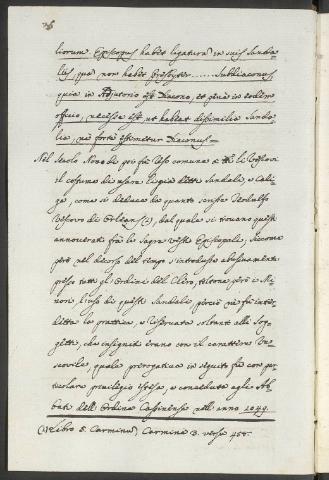 liorum Episcopus habet ligaturam in suis Sandaliis, quam non habet Presbyter...... Subdiaconus
quia in Adjutorio est Diacono, et pene in eodem
officio, necesse est ut habeat dissimilia Sandalia, ne forte estimetur Diaconus =
Nel Secolo Nono di poi fu l'uso comune a tutti li Vescovi
il costume di usare li già detti Sandali, e Caliga, come si deduce da quanto scrisse Teodulfo
Vescovo di Orleans (1), dal quale si trovano questi
annoverati frà le Sagre vesti Episcopali; Siccome
però nel decorso del tempo s'introdusse abusivamente
presso tutti gli Ordini del Clero, eziam però i Minori, l'uso di questi Sandali, perciò ne fu interdetta la prattica, e riservata soltanto alli Soggetti, che insigniti erano con il carattere Vescovile, quale prerogativa in seguito fù con particolare privilegio estesa, e conceduta agli Abbati dell'Ordine Cassinense nell'anno 1049.
(1) Libro 5. Carminum, Carmine 3. versu 455.